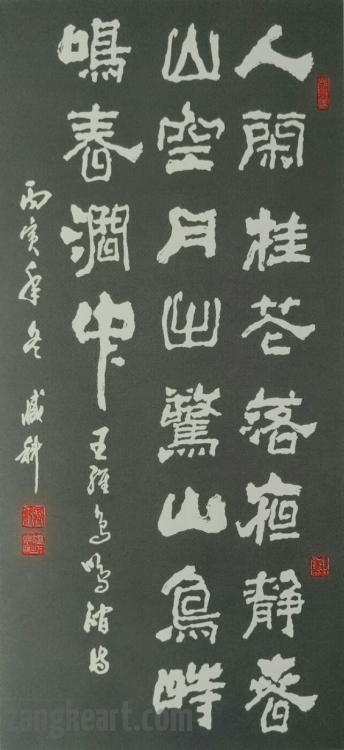 人閑桂花落夜静春
山空月出驚山鳥時
鳴春澗中 王維鳥鳴澗詩
丙寅年冬 臧科
zangkeart.com